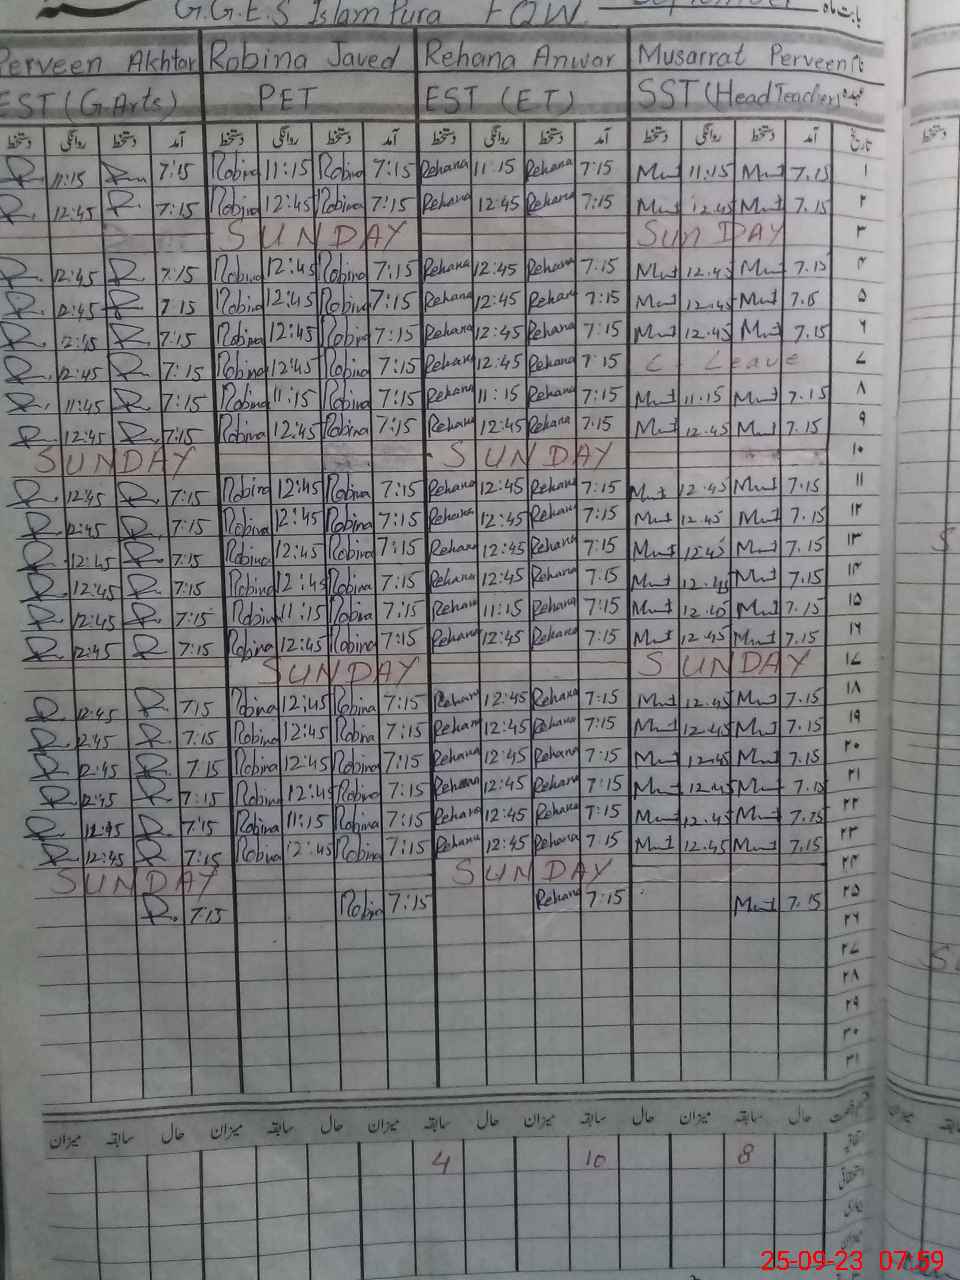 G.G.E.S Islam Pura FQW September بابت ماہ
Perveen Akhtar Robina Javed Rehana Anwar Musarrat Perveen نام
EST (G.Arts) PET EST (ET) SST (Head Teacher) عہدہ
دستخط روانگی دستخط آمد دستخط روانگی دستخط آمد دستخط روانگی دستخط آمد دستخط روانگی دستخط آمد تاریخ
11:15 7:15 Robina 11:15 Robina 7:15 Rehana 11:15 Rehana 7:15 Must 11.15 Must 7.15 ۱
12:45 7:15 Robina 12:45 Robina 7:15 Rehana 12:45 Rehana 7:15 Must 12.45 Must 7.15 ۲
SUNDAY SUNDAY ۳
12:45 7:15 Robina 12:45 Robina 7:15 Rehana 12:45 Rehana 7:15 Must 12.45 Must 7.15 ۴
12:45 7:15 Robina 12:45 Robina 7:15 Rehana 12:45 Rehana 7:15 Must 12.45 Must 7.15 ۵
12:45 7:15 Robina 12:45 Robina 7:15 Rehana 12:45 Rehana 7:15 Must 12.45 Must 7.15 ۶
12:45 7:15 Robina 12:45 Robina 7:15 Rehana 12:45 Rehana 7:15 C. Leave ۷
11:45 7:15 Robina 11:15 Robina 7:15 Rehana 11:15 Rehana 7:15 Must 11.15 Must 7.15 ۸
12:45 7:15 Robina 12:45 Robina 7:15 Rehana 12:45 Rehana 7.15 Must 12.45 Must 7.15 ۹
SUNDAY SUNDAY ۱۰
12:45 7:15 Robina 12:45 Robina 7:15 Rehana 12:45 Rehana 7:15 Must 12.45 Must 7.15 ۱۱
12:45 7:15 Robina 12:45 Robina 7:15 Rehana 12:45 Rehana 7:15 Must 12.45 Must 7.15 ۱۲
12:45 7:15 Robina 12:45 Robina 7:15 Rehana 12:45 Rehana 7:15 Must 12.45 Must 7.15 ۱۳
12:45 7:15 Robina 12:45 Robina 7:15 Rehana 12:45 Rehana 7.15 Must 12.45 Must 7.15 ۱۴
12:45 7:15 Robina 11:15 Robina 7:15 Rehana 11:15 Rehana 7:15 Must 12.45 Must 7.15 ۱۵
12:45 7:15 Robina 12:45 Robina 7:15 Rehana 12:45 Rehana 7:15 Must 12.45 Must 7.15 ۱۶
SUNDAY SUNDAY ۱۷
12:45 7:15 Robina 12:45 Robina 7:15 Rehana 12:45 Rehana 7:15 Must 12.45 Must 7.15 ۱۸
12:45 7:15 Robina 12:45 Robina 7:15 Rehana 12:45 Rehana 7:15 Must 12.45 Must 7.15 ۱۹
12:45 7:15 Robina 12:45 Robina 7:15 Rehana 12:45 Rehana 7:15 Must 12.45 Must 7.15 ۲۰
12:45 7:15 Robina 12:45 Robina 7:15 Rehana 12:45 Rehana 7:15 Must 12.45 Must 7.15 ۲۱
12:45 7:15 Robina 11:15 Robina 7:15 Rehana 12:45 Rehana 7:15 Must 12.45 Must 7.15 ۲۲
12:45 7:15 Robina 12:45 Robina 7:15 Rehana 12:45 Rehana 7:15 Must 12.45 Must 7.15 ۲۳
SUNDAY SUNDAY ۲۴
7:15 Robina 7:15 Rehana 7:15 Must 7.15 ۲۵
۲۶
۲۷
۲۸
۲۹
۳۰
۳۱
میزان سابقہ حال میزان سابقہ حال میزان سابقہ حال میزان سابقہ حال میزان سابقہ حال
4 10 8 اتفاقیہ
استحقاقی
بیماری
میزان
25-09-23 07:59